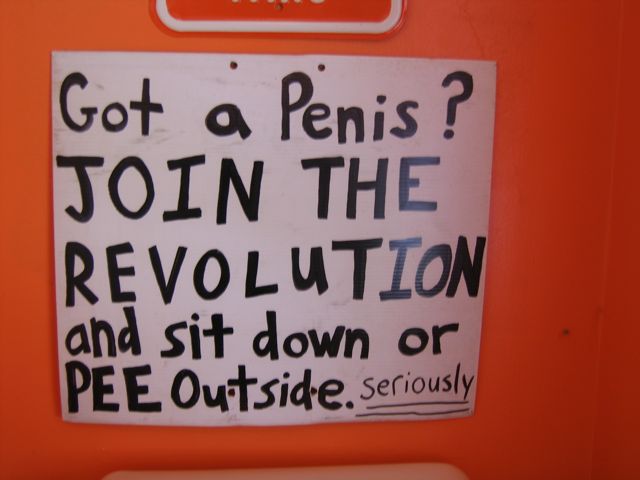 Got a Penis?
JOIN THE
REVOLUTION
and sit down or
PEE Outside. seriously